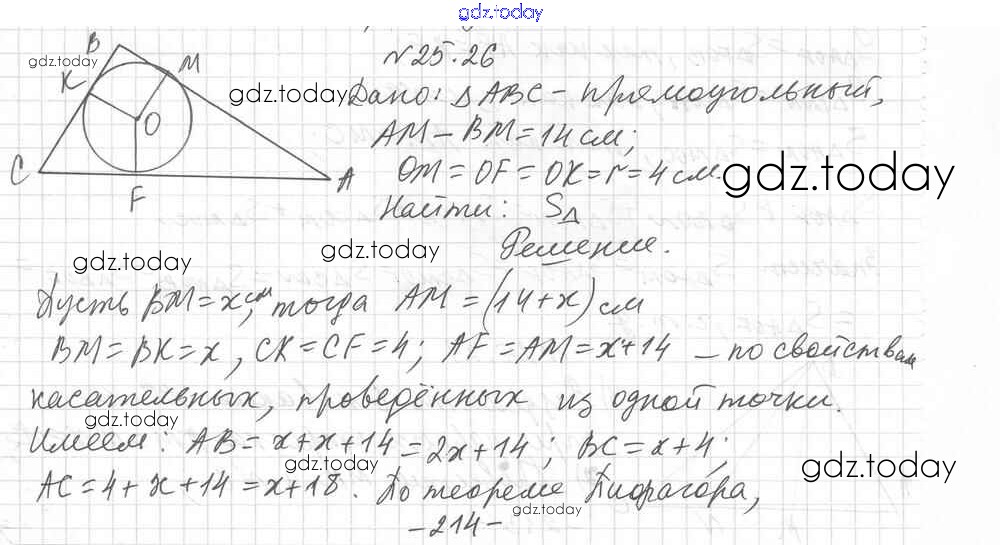 gdz.today
№25.26
B
gdz.today
K
M
gdz.today
Дано: △ABC - прямоугольный,
O
AM - BM = 14 см;
C
A
OM = OF = OK = r = 4 см.
gdz.today
F
Найти: S△
gdz.today
gdz.today
Решение.
Пусть BM = x см, тогда AM = (14+x) см
BM = BK = x, CK = CF = 4; AF = AM = x+14 - по свойствам
касательных, проведённых из одной точки.
gdz.today
Имеем: AB = x+x+14 = 2x+14; BC = x+4;
gdz.today
gdz.today
AC = 4+x+14 = x+18. По теореме Пифагора,
gdz.today
-214-